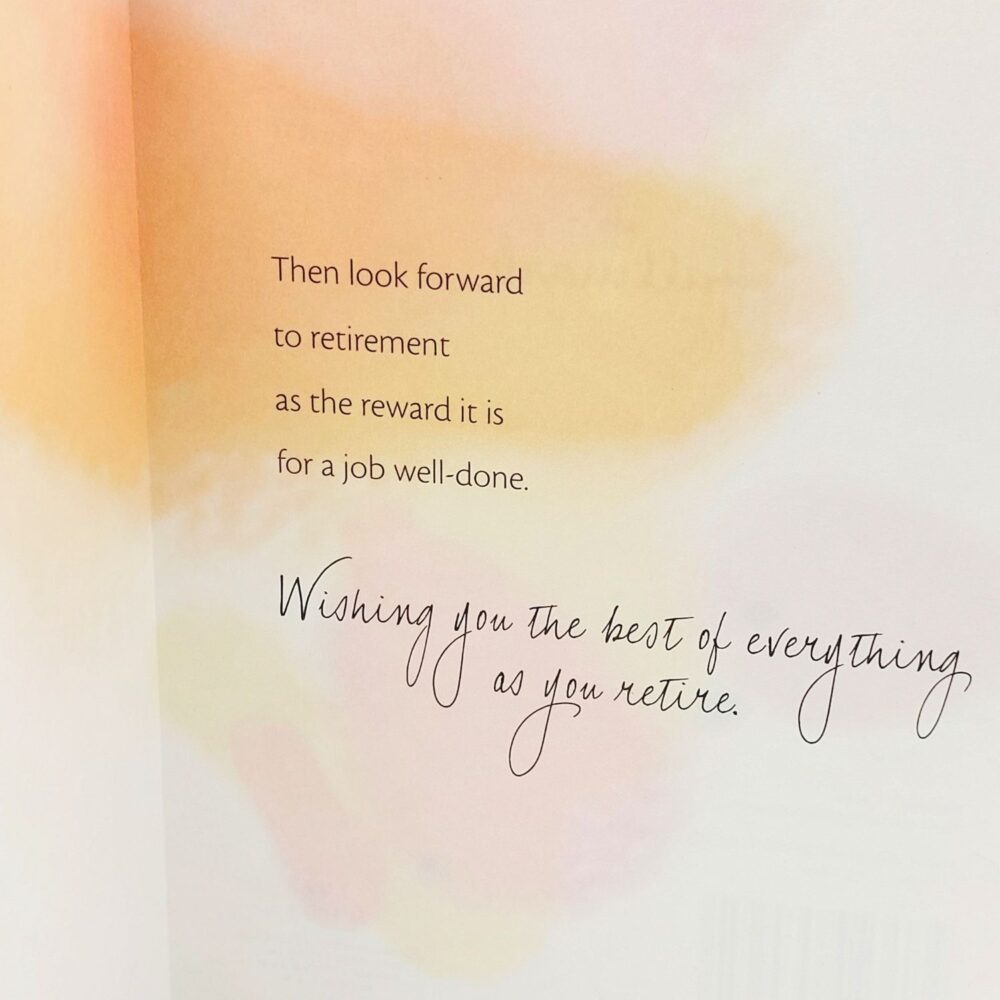 Then look forward
to retirement
as the reward it is
for a job well-done.
Wishing you the best of everything
as you retire.